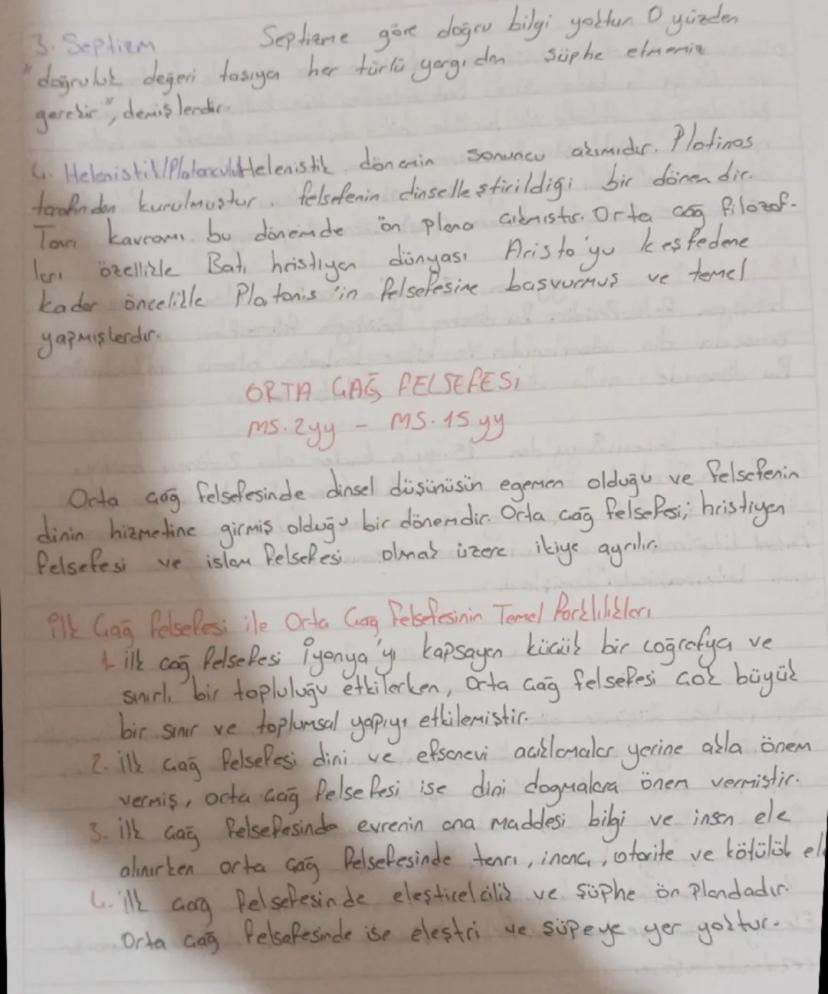 3. Septizm Septizme göre doğru bilgi yoktur O yüzden
"doğruluk değeri taşıyan her türlü yargıdan şüphe etmemiz
gerekir", demişlerdir.
4. Helenistik/Platonculuk Helenistik dönemin sonuncu akımıdır. Platinos
tarafından kurulmuştur. felsefenin dinselleştirildiği bir dönemdir.
Tanrı kavramı bu dönemde ön plana çıkmıştır. Orta çağ filozof-
ları özellikle Batı hristiyan dünyası Aristo'yu keşfedene
kadar öncelikle Platonis'in felsefesine başvurmuş ve temel
yapmışlardır.
ORTA ÇAĞ FELSEFESİ
MS. 2yy - MS. 15 yy
Orta çağ felsefesinde dinsel düşünüşün egemen olduğu ve felsefenin
dinin hizmetine girmiş olduğu bir dönemdir. Orta çağ felsefesi; hristiyan
felsefesi ve islam felsefesi olmak üzere ikiye ayrılır.
İlk Çağ felsefesi ile Orta Çağ felsefesinin Temel Farklılıkları
1. ilk çağ felsefesi İyonya'yı kapsayan küçük bir coğrafya ve
sınırlı bir topluluğu etkilerken, orta çağ felsefesi çok büyük
bir sınır ve toplumsal yapıyı etkilemiştir.
2. ilk çağ felsefesi dini ve efsanevi açıklamalar yerine akla önem
vermiş, orta çağ felsefesi ise dini dogmalara önem vermiştir.
3. ilk çağ felsefesinde evrenin ana maddesi bilgi ve insan ele
alınırken orta çağ felsefesinde tanrı, inanç, otorite ve kötülük el
4. ilk çağ felsefesinde eleştirelcilik ve şüphe ön plandadır.
Orta çağ felsefesinde ise eleştri ve şüpeye yer yoktur.